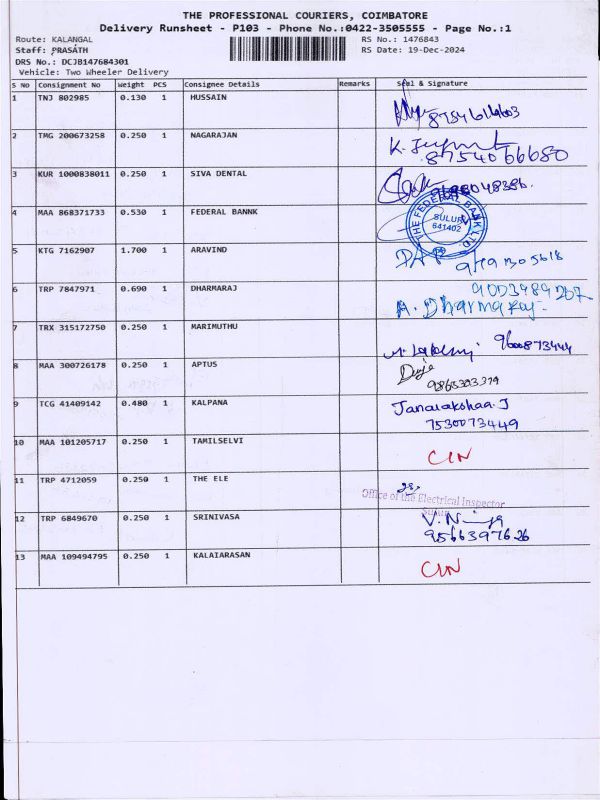 THE PROFESSIONAL COURIERS, COIMBATORE
Delivery Runsheet - P103 - Phone No.:0422-3505555 - Page No.:1
Route: KALANGAL RS No.: 1476843
Staff: PRASATH RS Date: 19-Dec-2024
DRS No.: DCJB147684301
Vehicle: Two Wheeler Delivery
S No Consignment No Weight PCS Consignee Details Remarks Seal & Signature
1 TNJ 802985 0.130 1 HUSSAIN
2 TMG 200673258 0.250 1 NAGARAJAN
8754066680
3 KUR 1000838011 0.250 1 SIVA DENTAL
4 MAA 868371733 0.530 1 FEDERAL BANNK
THE FEDERAL BANK LTD.
SULUR
641402
5 KTG 7162907 1.700 1 ARAVIND
6 TRP 7847971 0.690 1 DHARMARAJ
9003989207
A. Dharmaraj
7 TRX 315172750 0.250 1 MARIMUTHU
9600873444
8 MAA 300726178 0.250 1 APTUS
9865303379
9 TCG 41409142 0.480 1 KALPANA
Janarakshaa.J
7530073449
10 MAA 101205717 0.250 1 TAMILSELVI
CIN
11 TRP 4712059 0.250 1 THE ELE
Office of the Electrical Inspector
Sulur
12 TRP 6849670 0.250 1 SRINIVASA
9566397626
13 MAA 109494795 0.250 1 KALAIARASAN
CIN